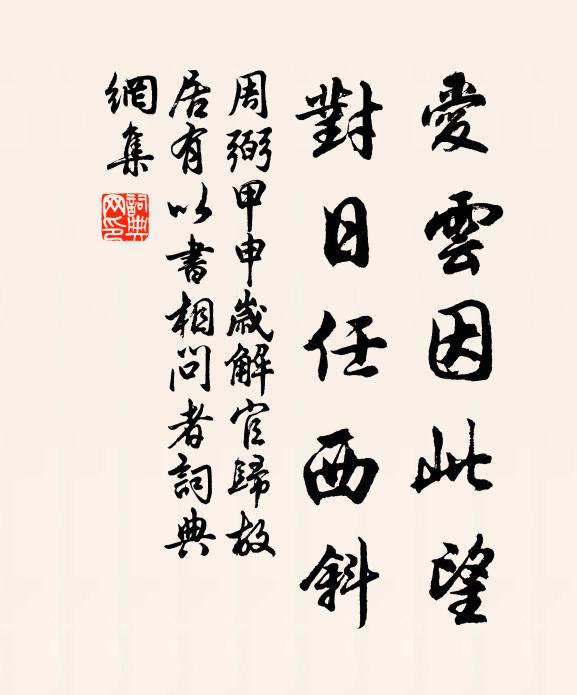 愛雲因此望
對日任西斜
周弼甲申歲解官歸故
居有以書相問者詞典
網集
詞典
网印